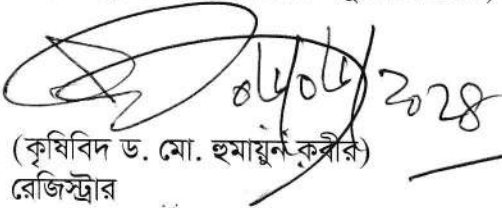 ২০২৪
(কৃষিবিদ ড. মো. হুমায়ুন কবীর)
রেজিস্ট্রার